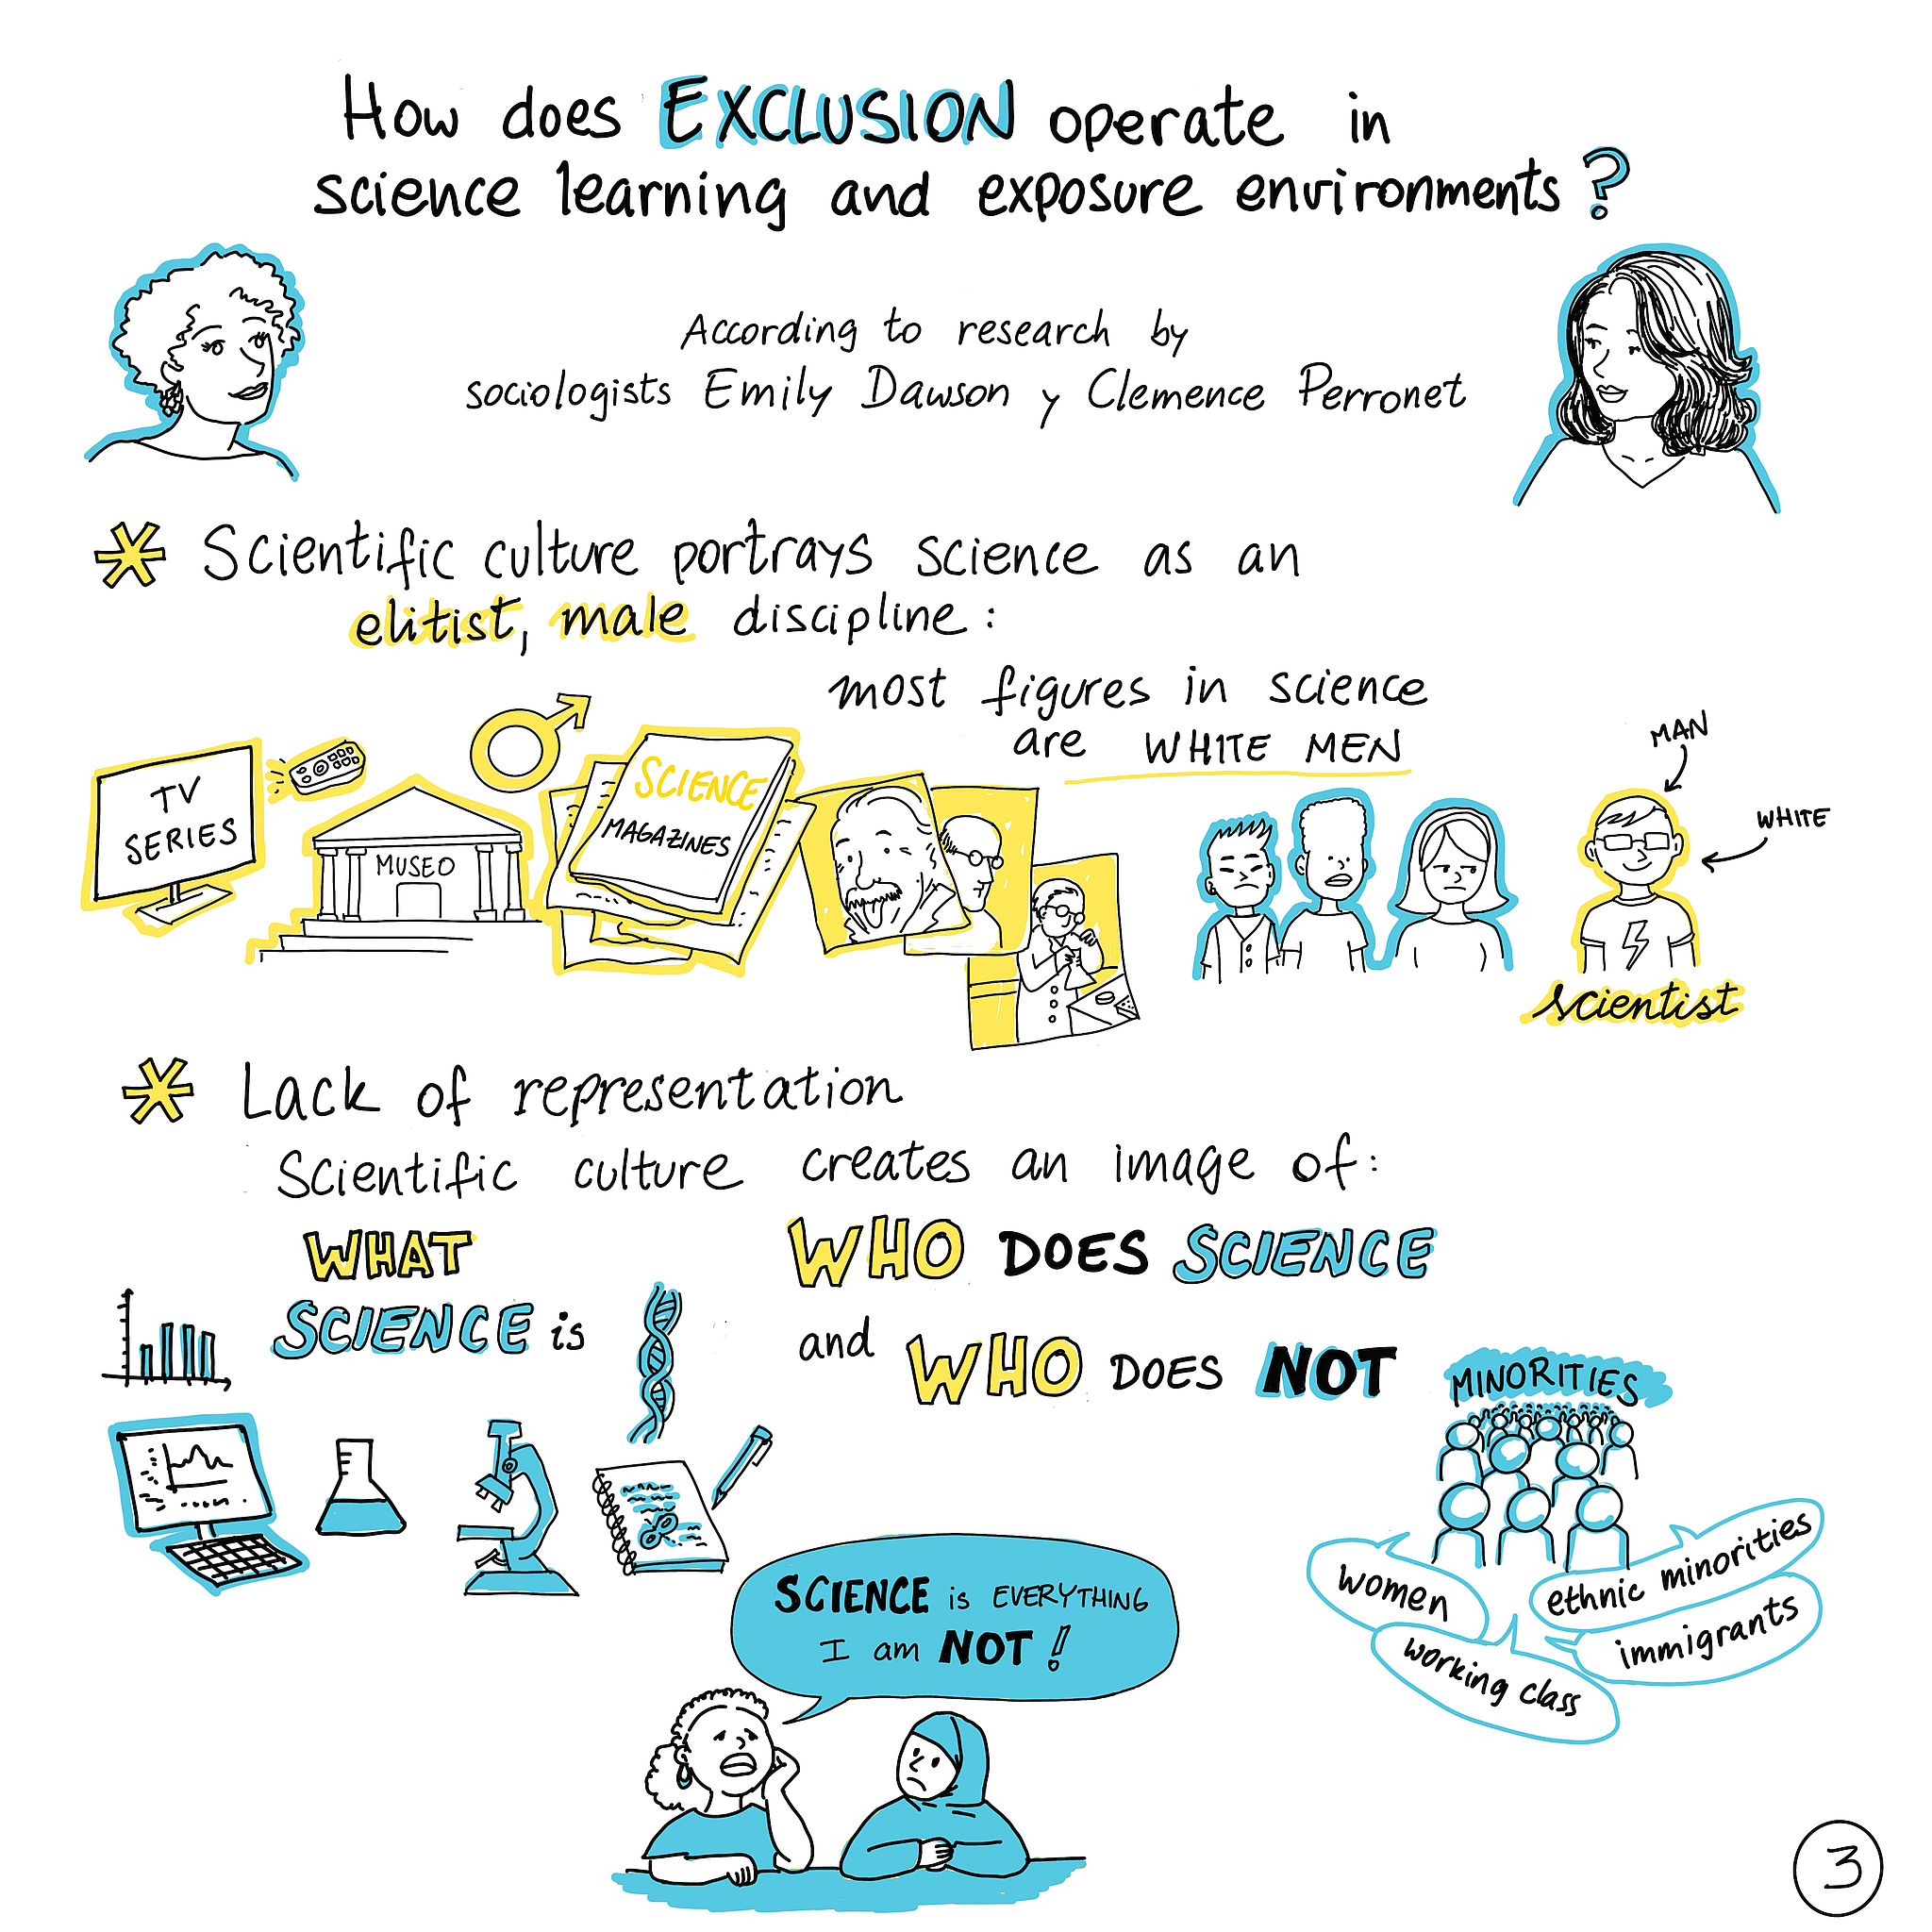 How does EXCLUSION operate in
science learning and exposure environments?
According to research by
sociologists Emily Dawson y Clemence Perronet
* Scientific culture portrays science as an
elitist, male discipline:
most figures in science
are WHITE MEN
TV
SERIES
MUSEO
SCIENCE
MAGAZINES
MAN
WHITE
scientist
* Lack of representation
Scientific culture creates an image of:
WHAT
SCIENCE is
WHO DOES SCIENCE
and WHO DOES NOT
MINORITIES
women
ethnic minorities
immigrants
working class
SCIENCE is EVERYTHING
I am NOT!
3